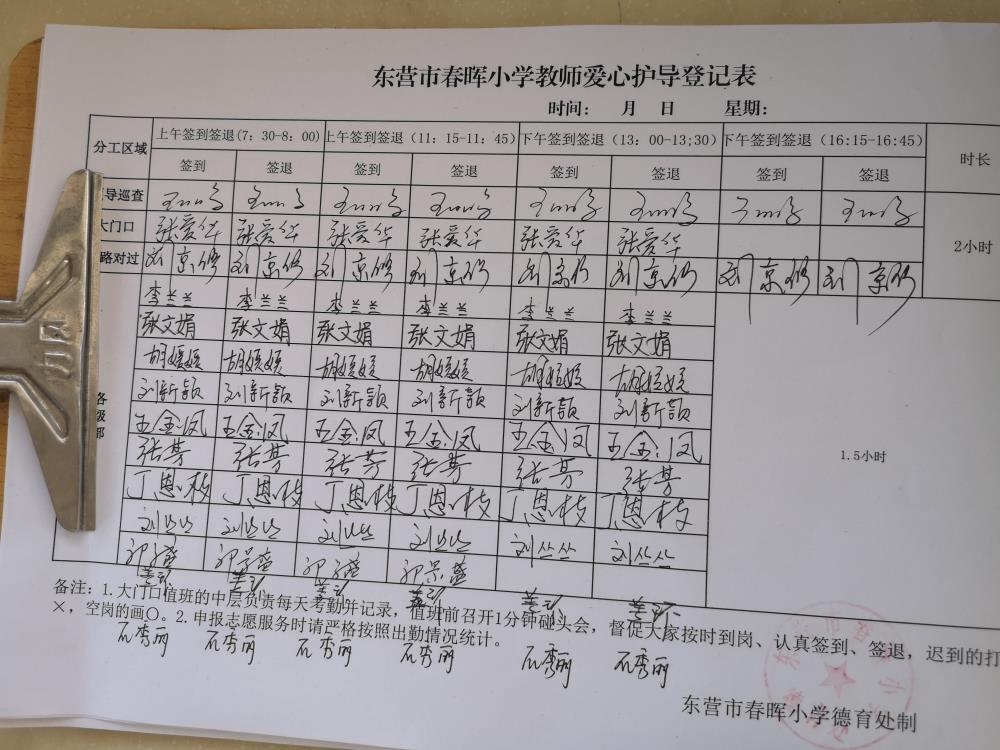 东营市春晖小学教师爱心护导登记表
时间： 月 日 星期：
分工区域 上午签到签退(7：30-8：00) 上午签到签退（11：15-11：45） 下午签到签退（13：00-13;30） 下午签到签退（16:15-16:45） 时长
签到 签退 签到 签退 签到 签退 签到 签退
导巡查
大门口 张爱华 张爱华 张爱华 张爱华 张爱华 张爱华 2小时
路对过 刘京修 刘京修 刘京修 刘京修 刘京修 刘京修 刘京修 刘京修
李兰兰 李兰兰 李兰兰 李兰兰 李兰兰 李兰兰
张文娟 张文娟 张文娟 张文娟 张文娟 张文娟
胡媛媛 胡媛媛 胡媛媛 胡媛媛 胡媛媛 胡媛媛
各级部 刘新颖 刘新颖 刘新颖 刘新颖 刘新颖 刘新颖
王金凤 王金凤 王金凤 王金凤 王金凤 王金凤 1.5小时
张芳 张芳 张芳 张芳 张芳 张芳
丁恩枝 丁恩枝 丁恩枝 丁恩枝 丁恩枝 丁恩枝
刘丛丛 刘丛丛 刘丛丛 刘丛丛 刘丛丛 刘丛丛
备注：1.大门口值班的中层负责每天考勤并记录，值班前召开1分钟碰头会，督促大家按时到岗、认真签到、签退，迟到的打
×，空岗的画〇。2.申报志愿服务时请严格按照出勤情况统计。
石秀丽 石秀丽 石秀丽 石秀丽 石秀丽 石秀丽
东营市春晖小学德育处制